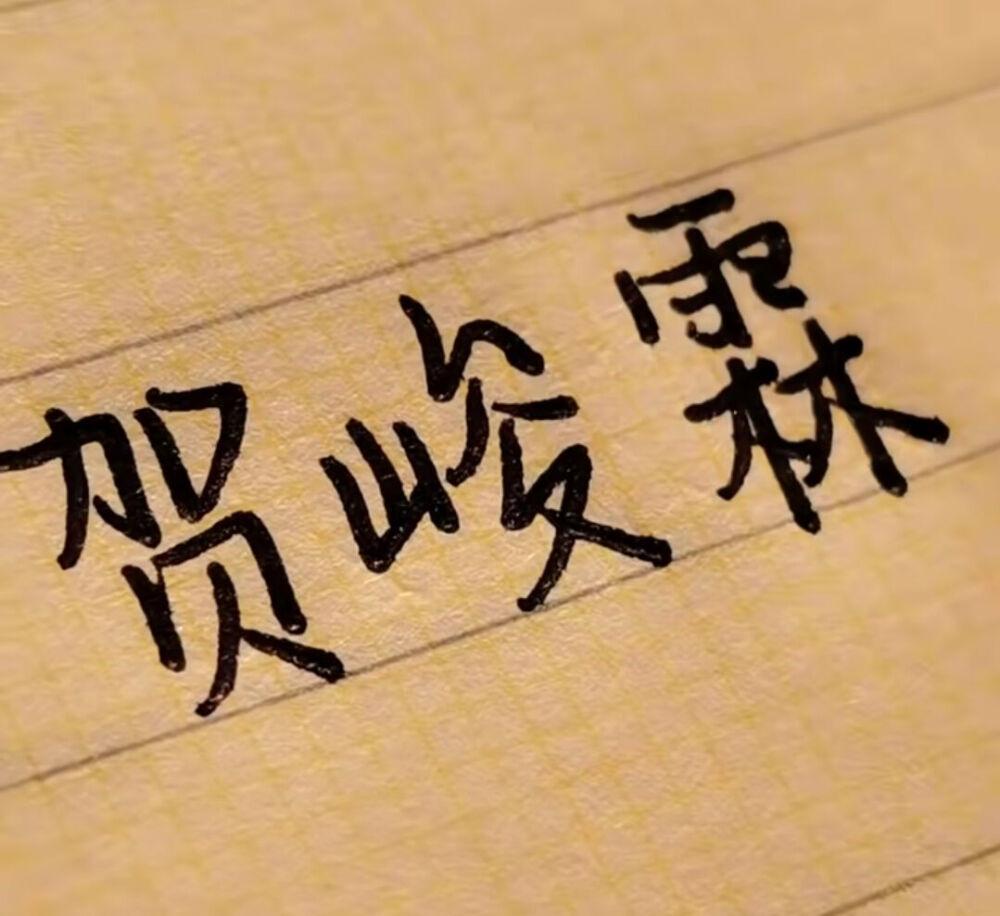 贺峻霖